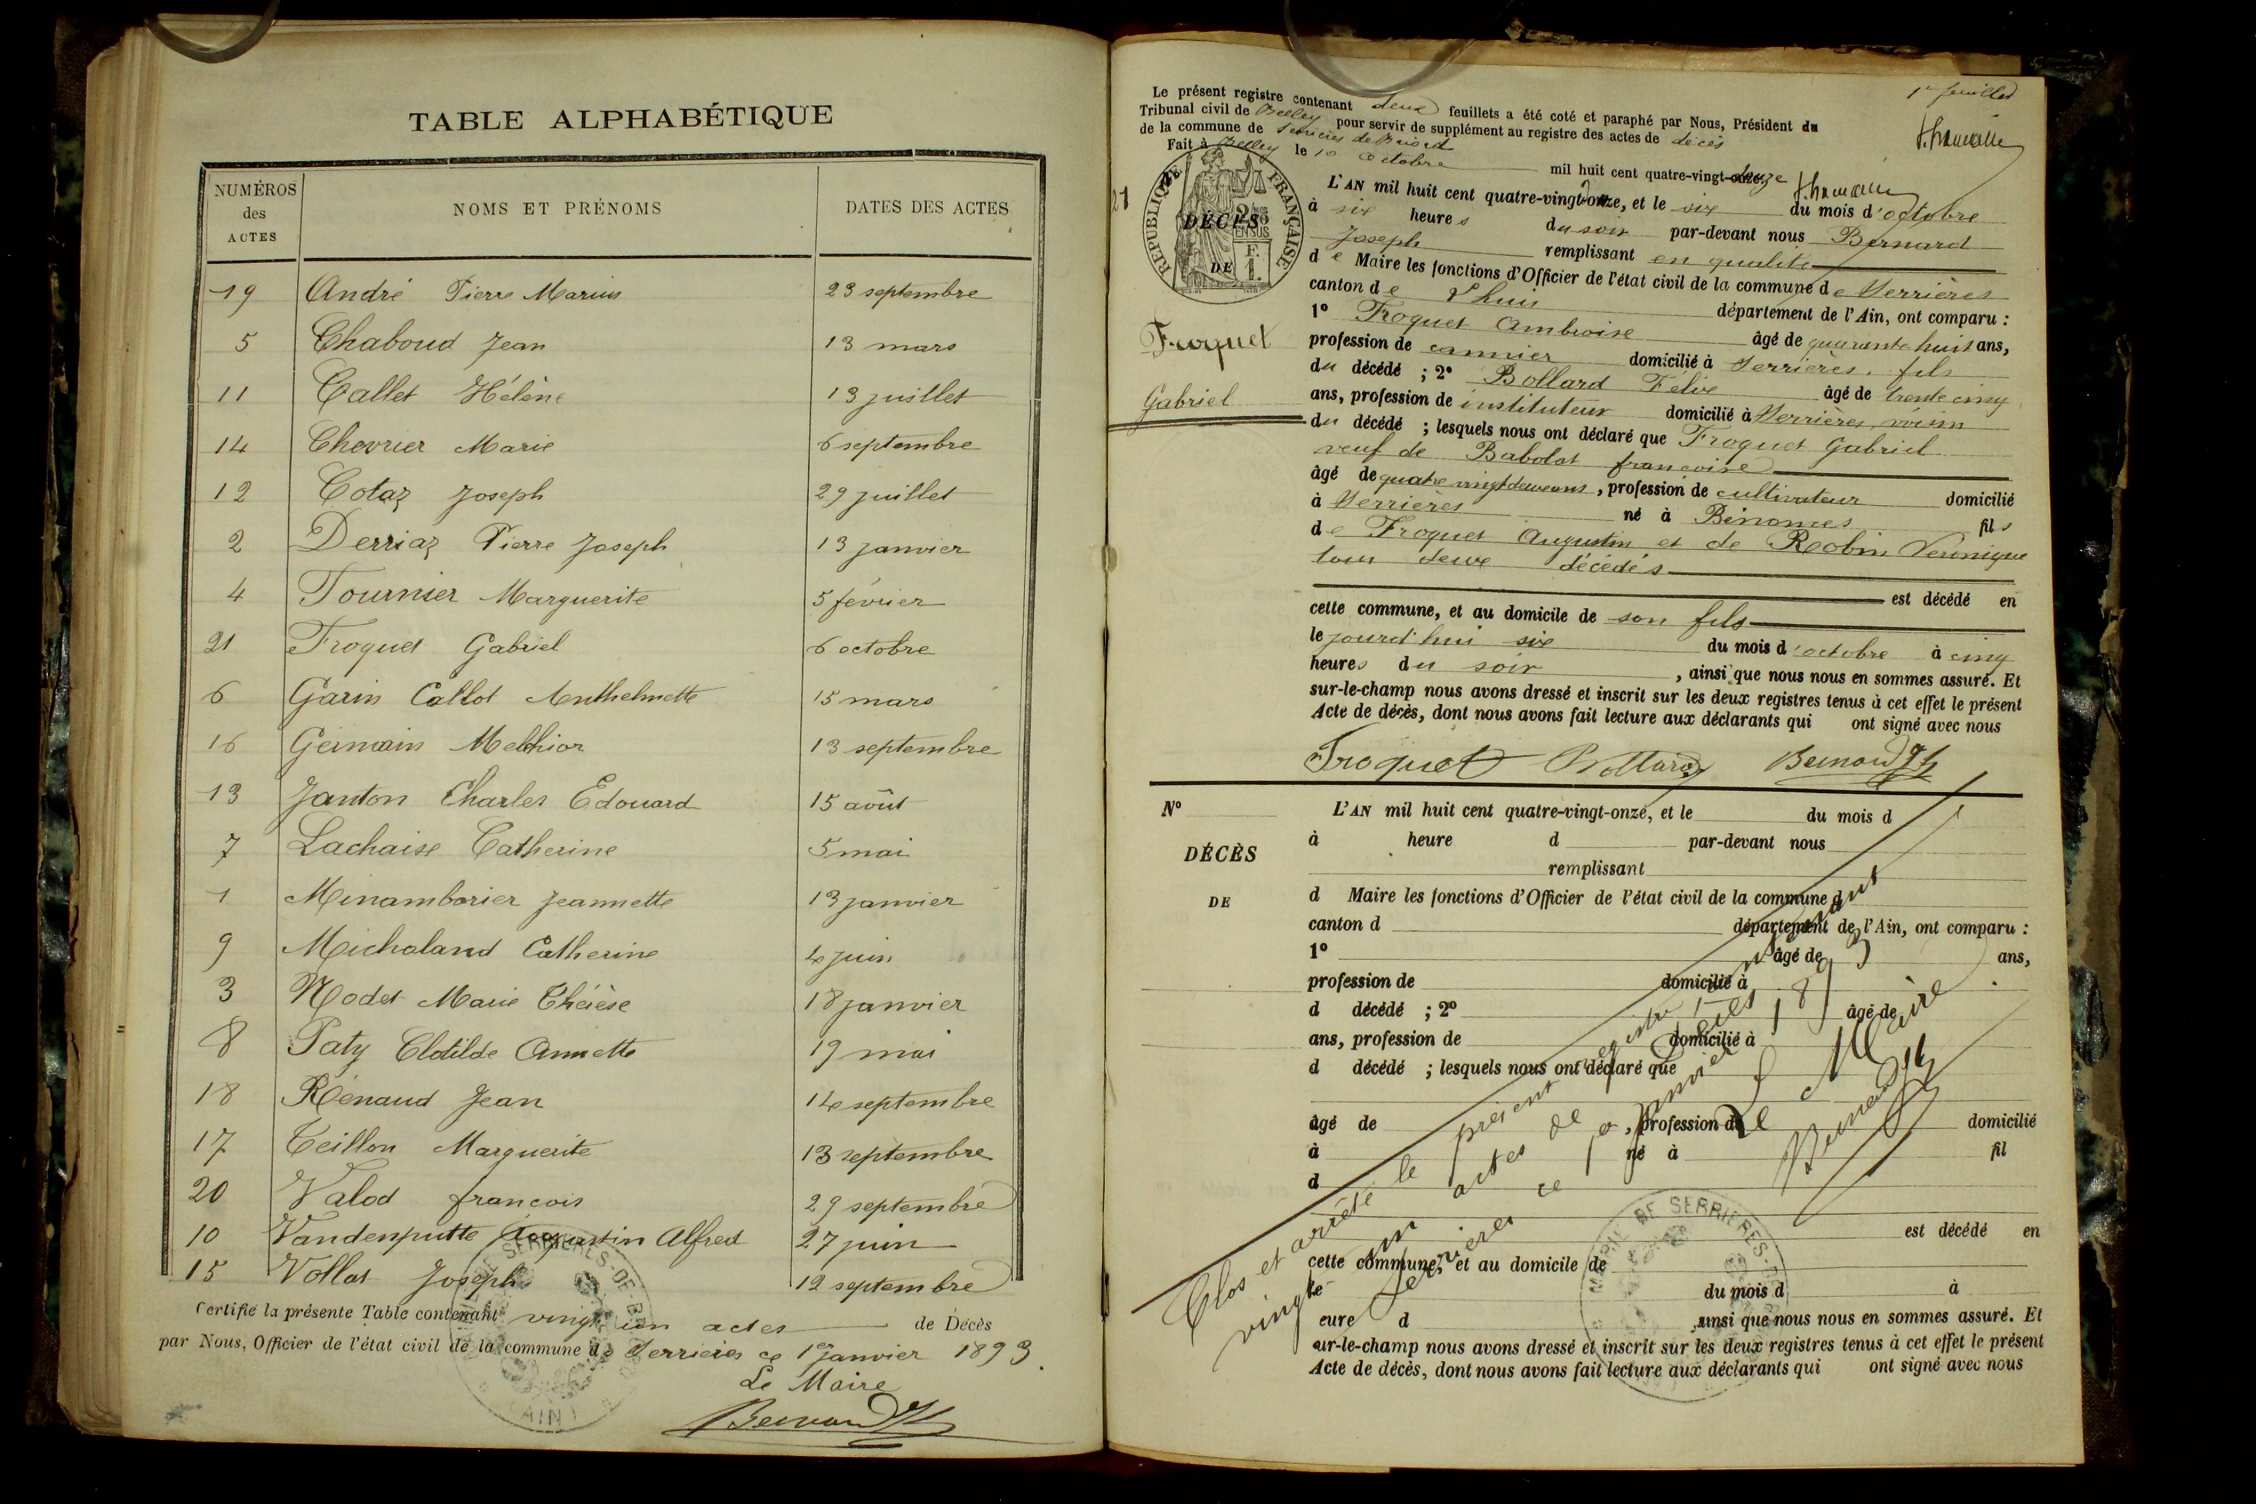 TABLE ALPHABÉTIQUE
NUMÉROS des ACTES NOMS ET PRÉNOMS DATES DES ACTES
19 André Pierre Marius 23 septembre
5 Chaboud Jean 13 mars
11 Callet Hélène 13 juillet
14 Chevrier Marie 6 septembre
12 Cotaz Joseph 29 juillet
2 Derriaz Pierre Joseph 13 janvier
4 Fournier Marguerite 5 février
21 Froquet Gabriel 6 octobre
6 Garin Callot Anthelmette 15 mars
16 Germain Melchior 13 septembre
13 Janton Charles Edouard 15 août
7 Lachaise Catherine 5 mai
1 Minamborier Jeannette 13 janvier
9 Michaland Catherine 4 juin
3 Nodet Marie Thérèse 18 janvier
8 Paty Clotilde Annette 19 mai
18 Rénaud Jean 14 septembre
17 Teillon Marguerite 13 septembre
20 Valod françois 29 septembre
10 Vandenputte Augustin Alfred 27 juin
15 Vollat Joseph 12 septembre
Certifié la présente Table contenant vingt un actes de Décès
par Nous, Officier de l'état civil de la commune de Serrières ce 1er janvier 1893.
Le Maire
Bernard
1r feuillet
Le présent registre contenant deux feuillets a été coté et paraphé par Nous, Président du
Tribunal civil de Belley pour servir de supplément au registre des actes de décès
de la commune de Serrières de Briord
Fait à Belley le 10 octobre mil huit cent quatre-vingt-onze douze
RÉPUBLIQUE FRANÇAISE
21
DÉCÈS
DE
Froquet
Gabriel
L'AN mil huit cent quatre-vingt-onze, et le six du mois d'octobre
à six heures du soir par-devant nous Bernard
Joseph remplissant en qualité
de Maire les fonctions d'Officier de l'état civil de la commune de Serrières
canton de Lhuis département de l'Ain, ont comparu :
1° Froquet Ambroise âgé de quarante huit ans,
profession de cannier domicilié à Serrières, fils
du décédé ; 2° Bollard Félix âgé de trente cinq
ans, profession de instituteur domicilié à Serrières, voisin
du décédé ; lesquels nous ont déclaré que Froquet Gabriel
veuf de Babolat françoise
âgé de quatre vingt deux ans, profession de cultivateur domicilié
à Serrières né à Bénonces fils
de Froquet Augustin et de Robin Véronique
tous deux décédés
est décédé en
cette commune, et au domicile de son fils
le jourd'hui six du mois d'octobre à cinq
heures du soir, ainsi que nous nous en sommes assuré. Et
sur-le-champ nous avons dressé et inscrit sur les deux registres tenus à cet effet le présent
Acte de décès, dont nous avons fait lecture aux déclarants qui ont signé avec nous
Froquet Bollard Bernard
N°
DÉCÈS
DE
L'AN mil huit cent quatre-vingt-onze, et le du mois d
à heure d par-devant nous
remplissant
d Maire les fonctions d'Officier de l'état civil de la commune d
canton d département de l'Ain, ont comparu :
1° âgé de ans,
profession de domicilié à
d décédé ; 2° âgé de
ans, profession de domicilié à
d décédé ; lesquels nous ont déclaré que
âgé de , profession de domicilié
à né à fil
d
est décédé en
cette commune, et au domicile de
le du mois d à
eure d , ainsi que nous nous en sommes assuré. Et
sur-le-champ nous avons dressé et inscrit sur les deux registres tenus à cet effet le présent
Acte de décès, dont nous avons fait lecture aux déclarants qui ont signé avec nous
Clos et arrêté le présent registre contenant
vingt un actes de décès
Serrières ce 1er janvier 1893
Le Maire
Bernard
MAIRIE DE SERRIERES-DE-